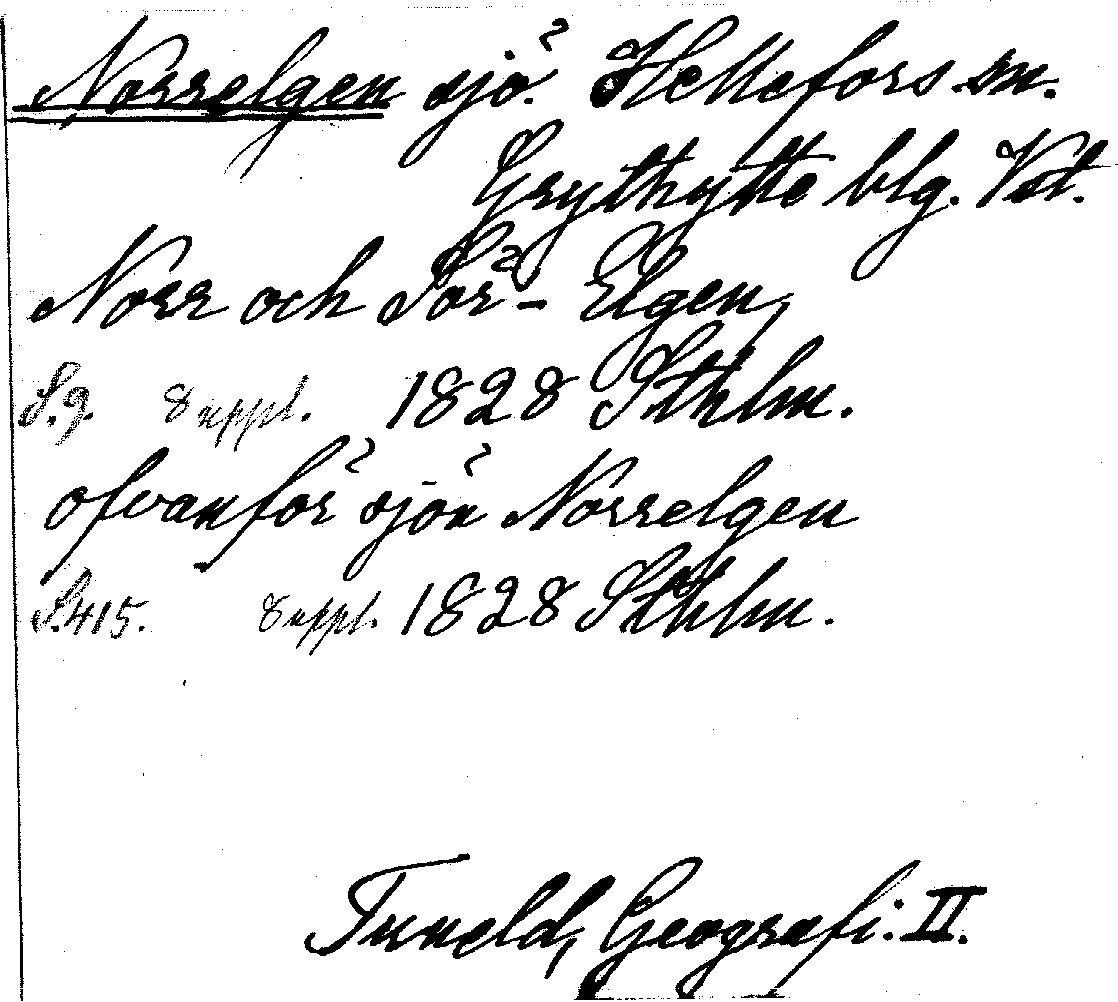 Norrelgen sjö. Hellefors sn.
Grythytte blg. Vstl.
Norr och Sör- Elgen,
S. 9. Suppl. 1828 Sthlm.
ofvanför sjön Norrelgen
S. 415. Suppl. 1828 Sthlm.
Tuneld, Geografi. II.